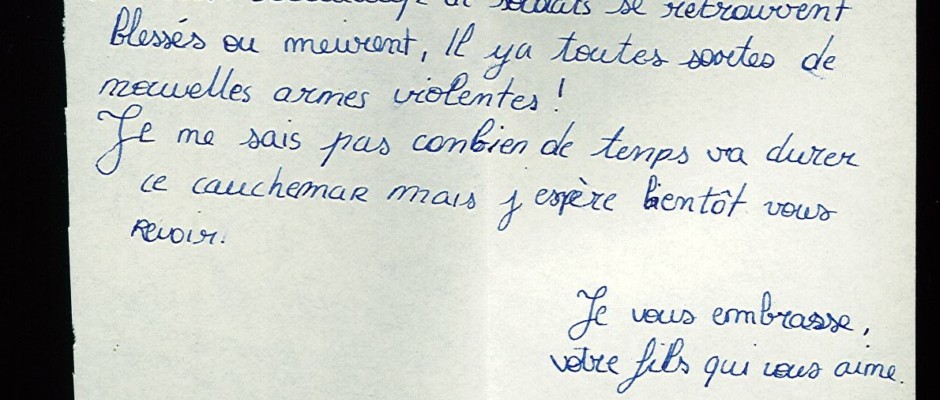 de soldats se retrouvent
blessés ou meurent, Il ya toutes sortes de
nouvelles armes violentes !
Je ne sais pas conbien de temps va durer
ce cauchemar mais j espère bientôt vous
revoir.
Je vous embrasse,
votre fils qui vous aime.